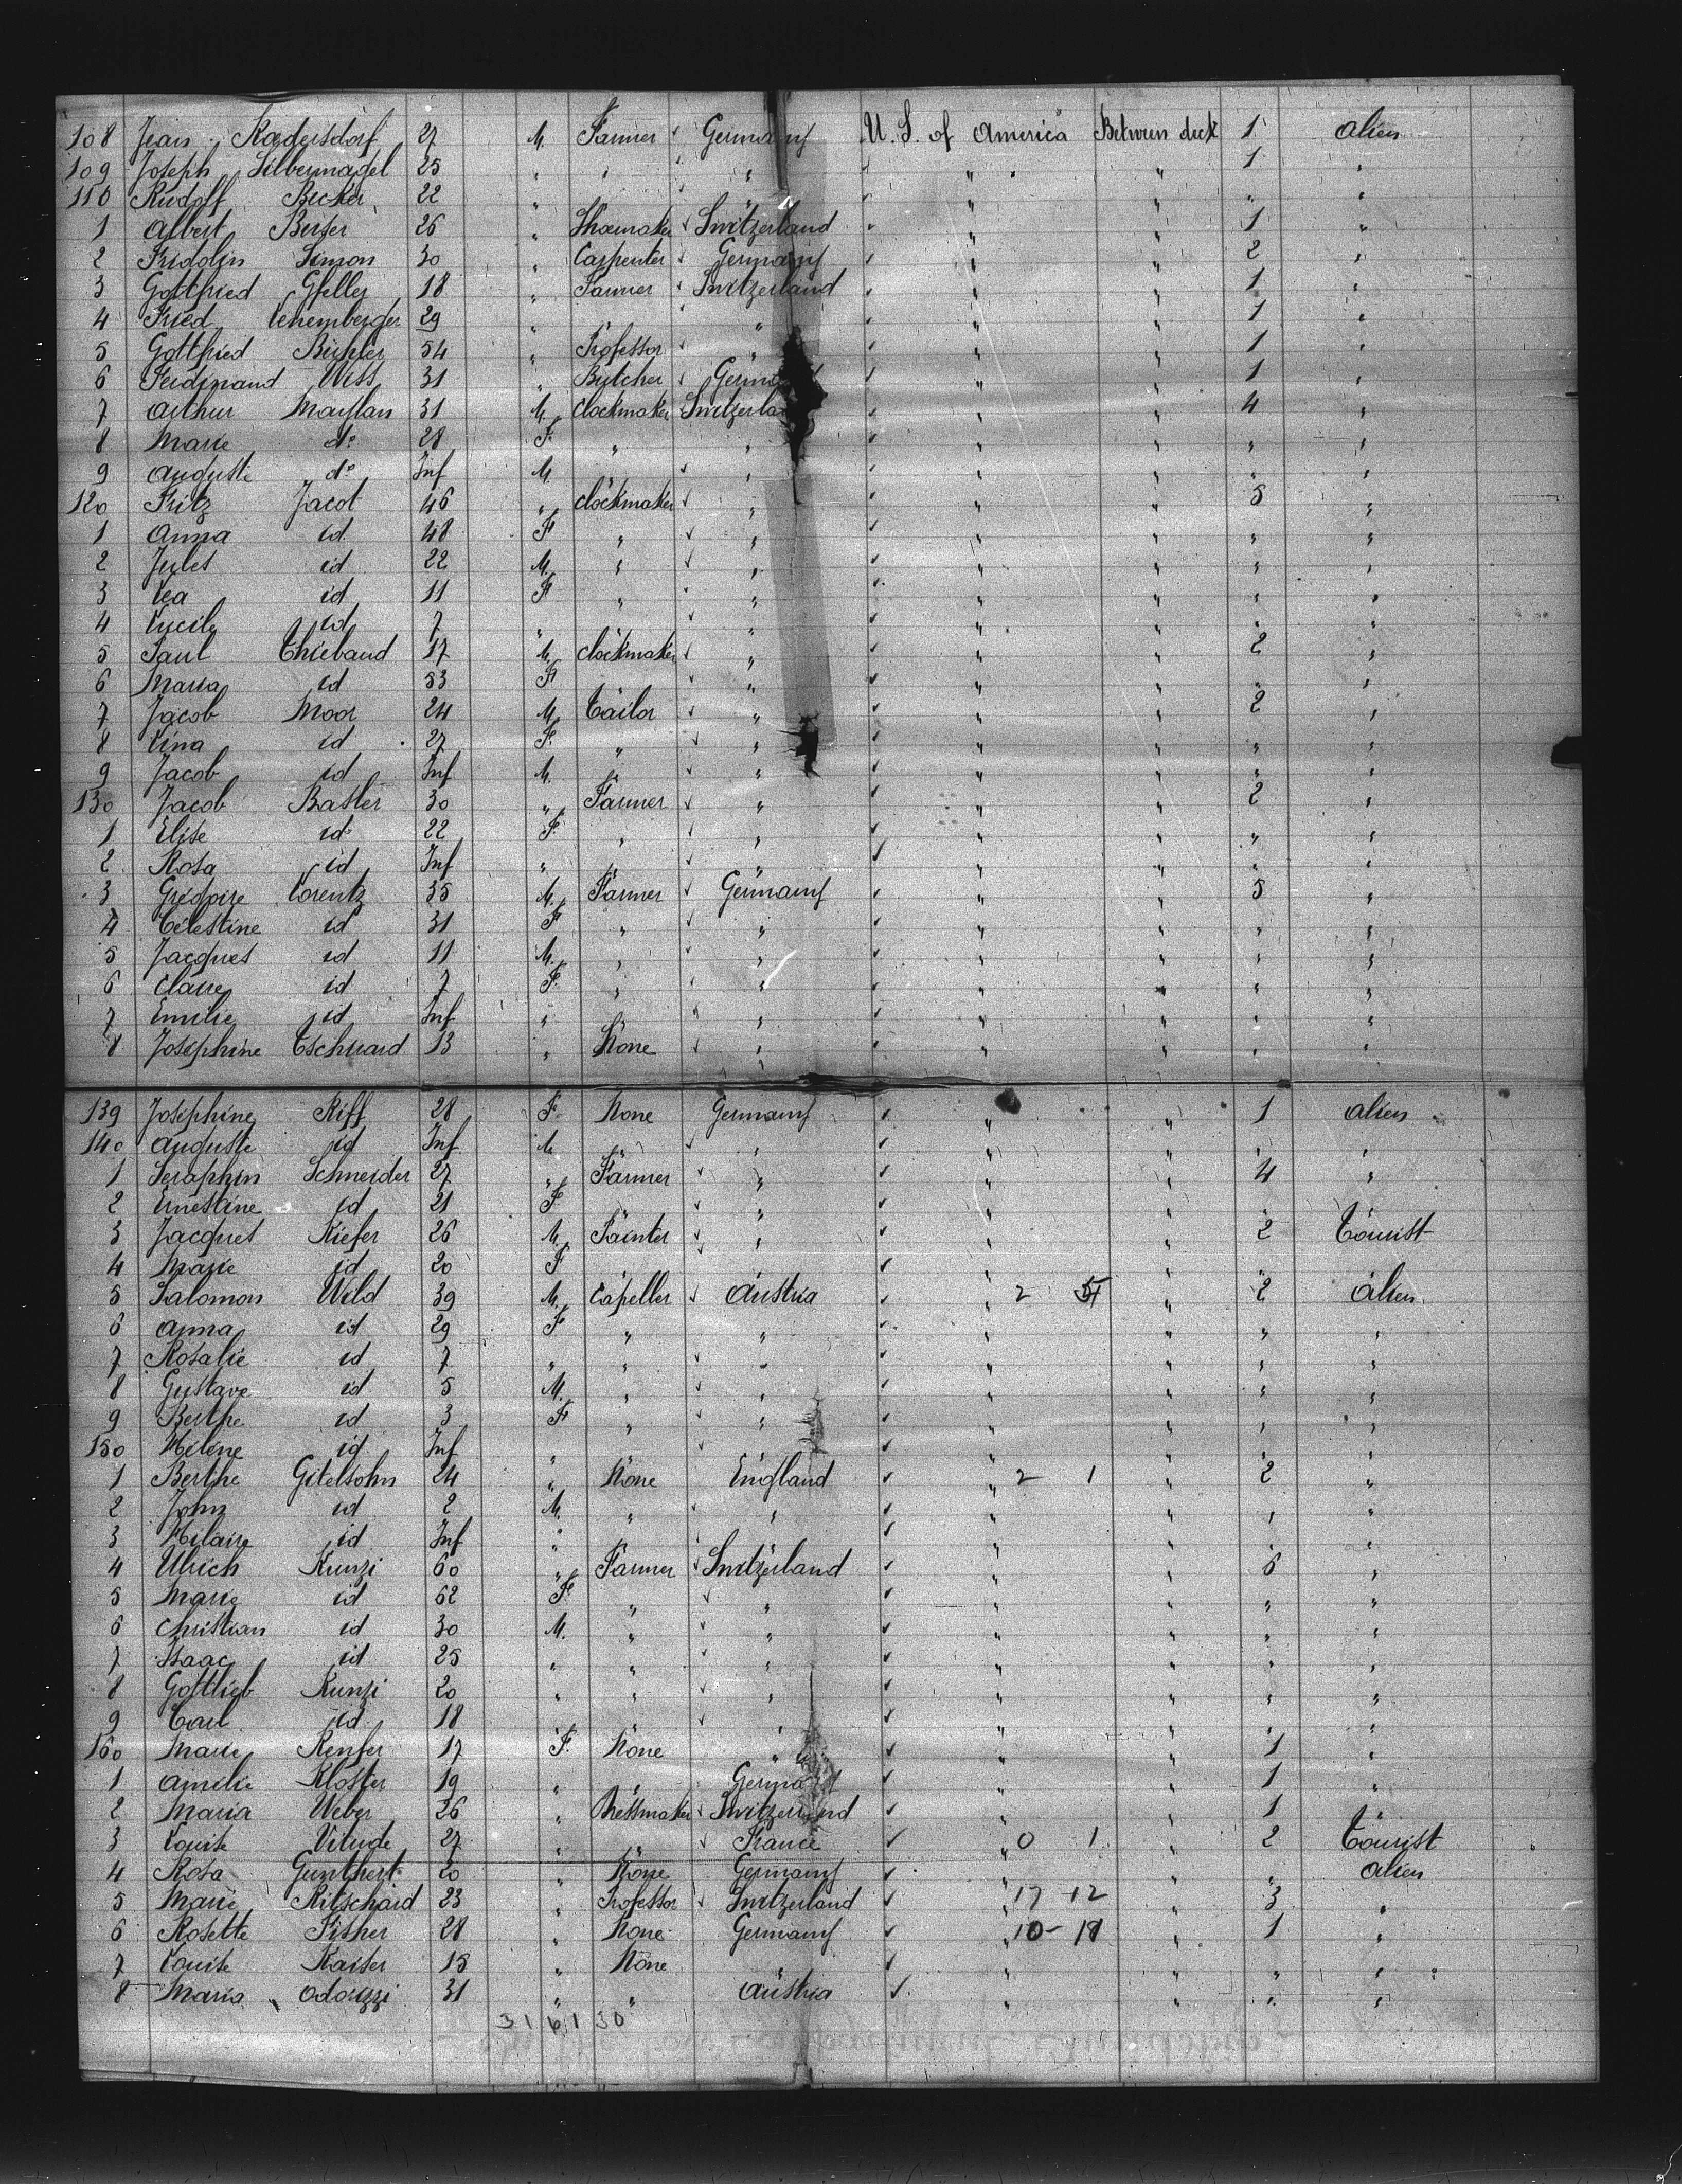 108 Jean Roedersdorf 27 M. Farmer Germany U. S. of America Between deck 1 alien
109 Joseph Silbernagel 25 " " " " " " 1 "
110 Rudolf Becker 22 " " " " " " "
1 Albert Berser 26 " Shoemaker Switzerland " " " 1 "
2 Fridolin Simon 30 " Carpenter Germany " " 2 "
3 Gottfried Gfeller 18 " Farmer Switzerland " " 1 "
4 Fried Lehemberger 29 " " " " " 1 "
5 Gottfried Buhler 54 " Professor " " " 1 "
6 Ferdinand Wiss 31 " Butcher Germany " " 1 "
7 Arthur Maylan 31 M. clockmaker Switzerland " " 4 "
8 Marie do 28 F. " " " " " "
9 Auguste do Inf M. " " " " "
120 Fritz Jacot 46 " clockmaker " " " 5 "
1 Anna id 48 F " " " " " "
2 Jules id 22 M. " " " " " "
3 Lea id 11 F " " " " " "
4 Lucile id 7 " " " " " "
5 Paul Thiebaud 17 M. clockmaker " " " 2 "
6 Maria id 53 F " " " " "
7 Jacob Moor 24 M. Tailor " " " 2 "
8 Lina id 27 F. " " " " " "
9 Jacob id Inf M. " " " " " "
130 Jacob Basler 30 " Farmer " " " 2 "
1 Elise id 22 F. " " " " " "
2 Rosa id Inf " " " " " " "
3 Grégoire Lorentz 35 M. Farmer Germany " " 5 "
4 Célestine id 31 F " " " " " "
5 Jacques id 11 M. " " " " " "
6 Claire id 7 F. " " " " " "
7 Emilie id Inf " " " " " " "
8 Josephine Tschuard 13 " None " " " " "
139 Josephine Riff 28 F. None Germany " " 1 alien
140 Auguste id Inf M " " " " " "
1 Seraphin Schneider 27 " Farmer " " " 4 "
2 Ernestine id 21 F " " " " "
3 Jacques Kiefer 26 M. Painter " " " 2 Tourist
4 Marie id 20 F " " "
5 Salomon Wild 39 M. Capeller Austria " 2 " 2 Alien
6 Anna id 29 F " " " " " "
7 Rosalie id 7 " " " " " " "
8 Gustave id 5 M. " " " " " "
9 Berthe id 3 F " " " " " "
150 Hélène id Inf " " " " "
1 Berthe Gitelsohn 24 " None England " 2 1 " 2 "
2 John id 2 M. " " " " " "
3 Hilaire id Inf " " " " "
4 Ulrich Kunzi 60 " Farmer Switzerland " " 6 "
5 Marie id 62 F. " " " " " "
6 Christian id 30 M. " " " " " "
7 Isaac id 25 " " " " " " "
8 Gottlieb Kunzi 20 " " " " " " "
9 Carl id 18 " " " " " "
160 Marie Renfer 17 F. None " " " 1 "
1 Amélie Kloster 19 " " Germany " " 1 "
2 Maria Weber 26 " Dressmaker Switzerland " " 1 "
3 Louise Vilude 27 " " France " 0 1 " 2 Tourist
4 Rosa Gunthert 20 " None Germany " " " alien
5 Marie Ritschard 23 " Professor Switzerland " 17 12 " 3 "
6 Rosette Fisher 28 " None Germany " 10 - 18 " 1 "
7 Louise Kaiser 15 " None " " " " "
8 Maria Odorizzi 31 " " Austria " " " "
31 61 30